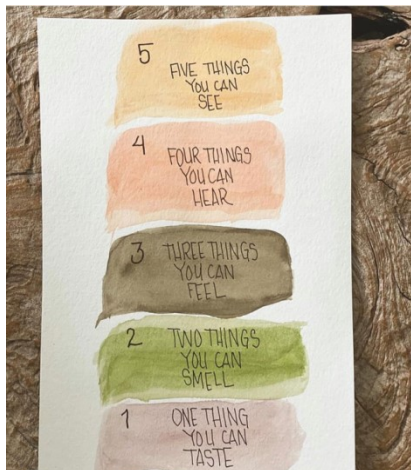 5
FIVE THINGS
YOU CAN
SEE
4
FOUR THINGS
YOU CAN
HEAR
3
THREE THINGS
YOU CAN
FEEL
2
TWO THINGS
YOU CAN
SMELL
1
ONE THING
YOU CAN
TASTE